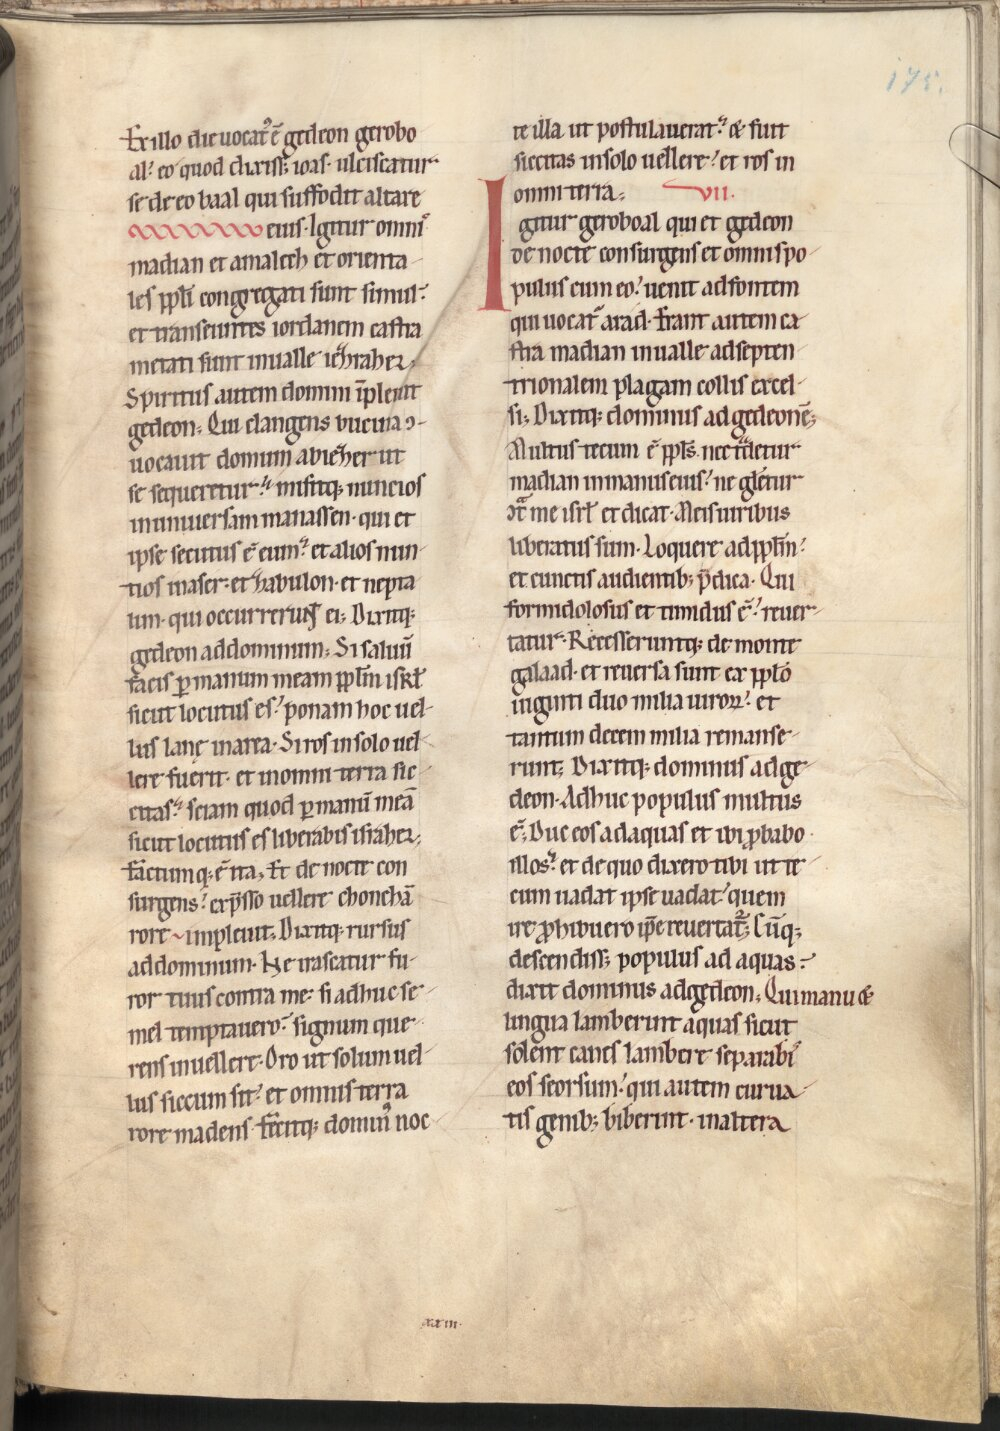 175.
Ex illo die uocat᷒ ē gedeon gerobo
al᷒ eo quod dixiss; ioas· ulciscatur
se de eo baal qui suffodit altare
eius· Igitur omnis
madian et amalech et orienta-
les ppl̄i congregati sunt simul᷒
et transeuntes iordanem castra
metati sunt inualle iezrahel,
Spiritus autem domini īpleuit
gedeon; Qui clangens bucina ɔ-
uocauit domum abiezer ut
se sequeretur᷒ misitq; nuncios
inuniuersam manassen· qui et
ipse secutus ē eum᷒ et alios nun-
tios inaser· et zabulon· et nepta
lim· qui occurrerunt ei; Dixitq;
gedeon addominum; Si saluū
facis ꝑ manum meam ppl̄m isr̄l
sicut locutus es᷒ ponam hoc uel-
lus lanę inarea· Si ros insolo uel-
lere fuerit· et inomni terra sic-
citas᷒ sciam quod ꝑ manū meā
sicut locutus es liberabis israhel;
Factumq; ē ita; Et de nocte con
surgens᷒ exp̄sso uellere chonchā
rore impleuit; Dixitq; rursus
addominum· Ne irascatur fu-
ror tuus contra me· si adhuc se-
mel temptauero᷒ signum que-
rens inuellere· Oro ut solum uel-
lus siccum sit᷒ et omnis terra
rore madens· Fecitq; dominus noc
te illa ut postulauerat᷒ & fuit
siccitas insolo uellere᷒ et ros in
omni terra; VII.
Igitur geroboal qui et gedeon
de nocte consurgens et omnis po-
pulus cum eo᷒ uenit adfontem
qui uocat᷒ arad· Erant autem ca-
stra madian inualle adsepten-
trionalem plagam collis excel-
si; Dixitq; dominus ad gedeonē;
Multus tecum ē ppl̄s· nec tͣdetur
madian inmanus eius᷒ ne gl̄etur
ɔtͣ me isr̄l et dicat· Meis uiribus
liberatus sum· Loquere ad ppl̄m᷒
et cunctis audientib; p̄dica· Qui
formidolosus et timidus ē᷒ reuer-
tatur· Recesseruntq; de monte
galaad· et reuersa sunt ex ppl̄o
uiginti duo milia uiroꝝ᷒ et
tantum decem milia remanse-
runt; Dixitq; dominus ad ge-
deon· Adhuc populus multus
ē; Duc eos ad aquas et ibi ꝓbabo
illos᷒ et de quo dixero tibi ut te-
cum uadat ipse uadat᷒ quem
ire ꝓhibuero ip̄e reuertat᷒; Cūq;
descendiss; populus ad aquas᷒
dixit dominus ad gedeon; Qui manu &
lingua lamberint aquas sicut
solent canes lambere separabis
eos seorsum᷒ qui autem curua-
tis genib; biberint· inaltera
xxiii·